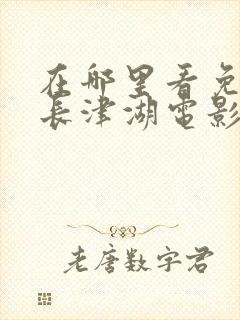 在哪里看免
长津湖电影
老唐数字君